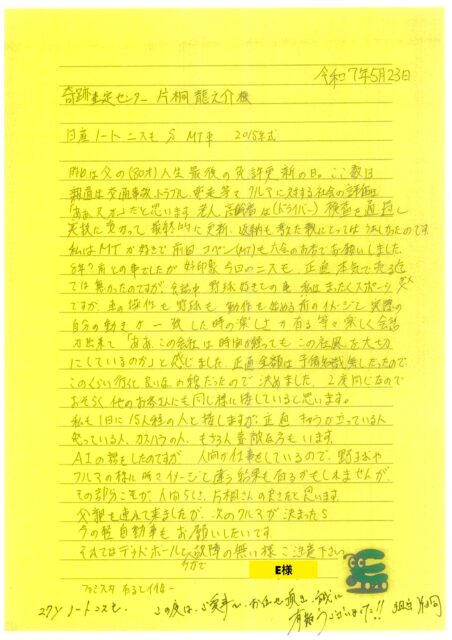 令和7年5月23日
奇跡査定センター 片桐龍之介様
日産ノートニスモS MT車 2018年式
昨日は父の(80才)人生最後の免許更新の日。ここ数日
報道は交通事故、トラブル、クルマに対する社会の評価は
だと思います。老人、高齢者は(ドライバー) 検査
実技に受かって最終的に更新、返納も考えた私にとってはうれしかったのです
私はMTが好きで前回コペン(MT)も お願いしました。
今回のニスモ、正直本気で売る
では無かったのですが 会話中 野球好きとの事 私はまったくスポーツ
ですが、車の操作も野球も動作も始める前のイメージと実際の
自分の動きが一致した時の楽しさが有る等々楽しく会話
が出来て「ああ、この会社は時間が経ってもこの社風を大切
にしているのか」と感じました。正直金額は予備知識無しだったので
このくらい行くと良いな の額だったので決めました。2度同じなので
おそらく他のお客さんにも同じ様に接していると思います。
私も1日に15人程の人と接しますが、正直
怒っている人、カスハラの人、もちろん素敵な方もいます
AIの話をしたのですが 人間が仕事をしているので、野球や
クルマの様に時々イメージと違う結果も有るかもしれませんが
その部分こそが、人間らしさ、片桐さんの良さだと思います。
父親も連れて来ましたが、次のクルマが決まったら
今の軽自動車もお願いしたいです
それではデッドボールと故障の無い様ご注意下さい
E様
この度は、ご愛車 お任せ頂き、誠に
有難うございました!!